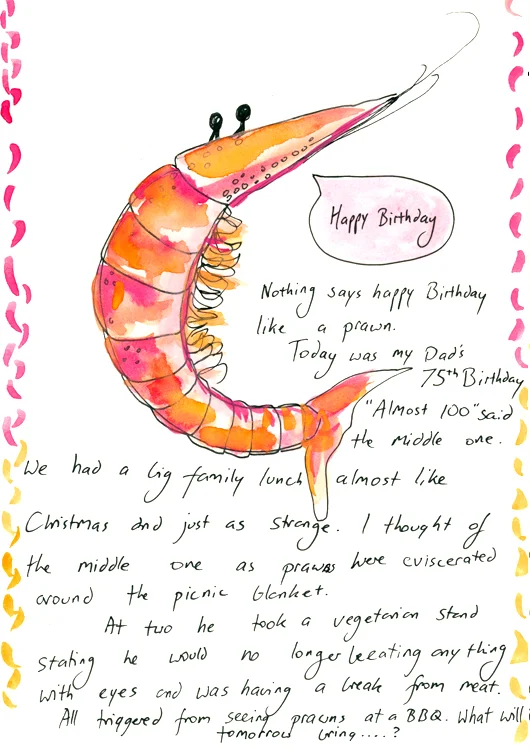 Happy Birthday
Nothing says happy Birthday
like a prawn.
Today was my Dad's
75th Birthday
"Almost 100" said
the middle one.
We had a big family lunch almost like
Christmas and just as strange. I thought of
the middle one as prawns were eviscerated
around the picnic blanket.
At two he took a vegetarian stand
stating he would no longer be eating any thing
with eyes and was having a break from meat.
All triggered from seeing prawns at a BBQ. What will
tomorrow bring....?